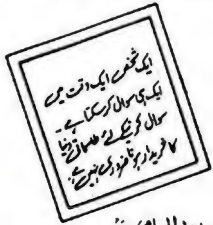 ایک شخص ایک وقت میں
ایک ہی سوال کرسکتا ہے۔
سوال کرنیکے لئے طلسماتی دنیا
کا خریدار ہونا ضروری نہیں ہے